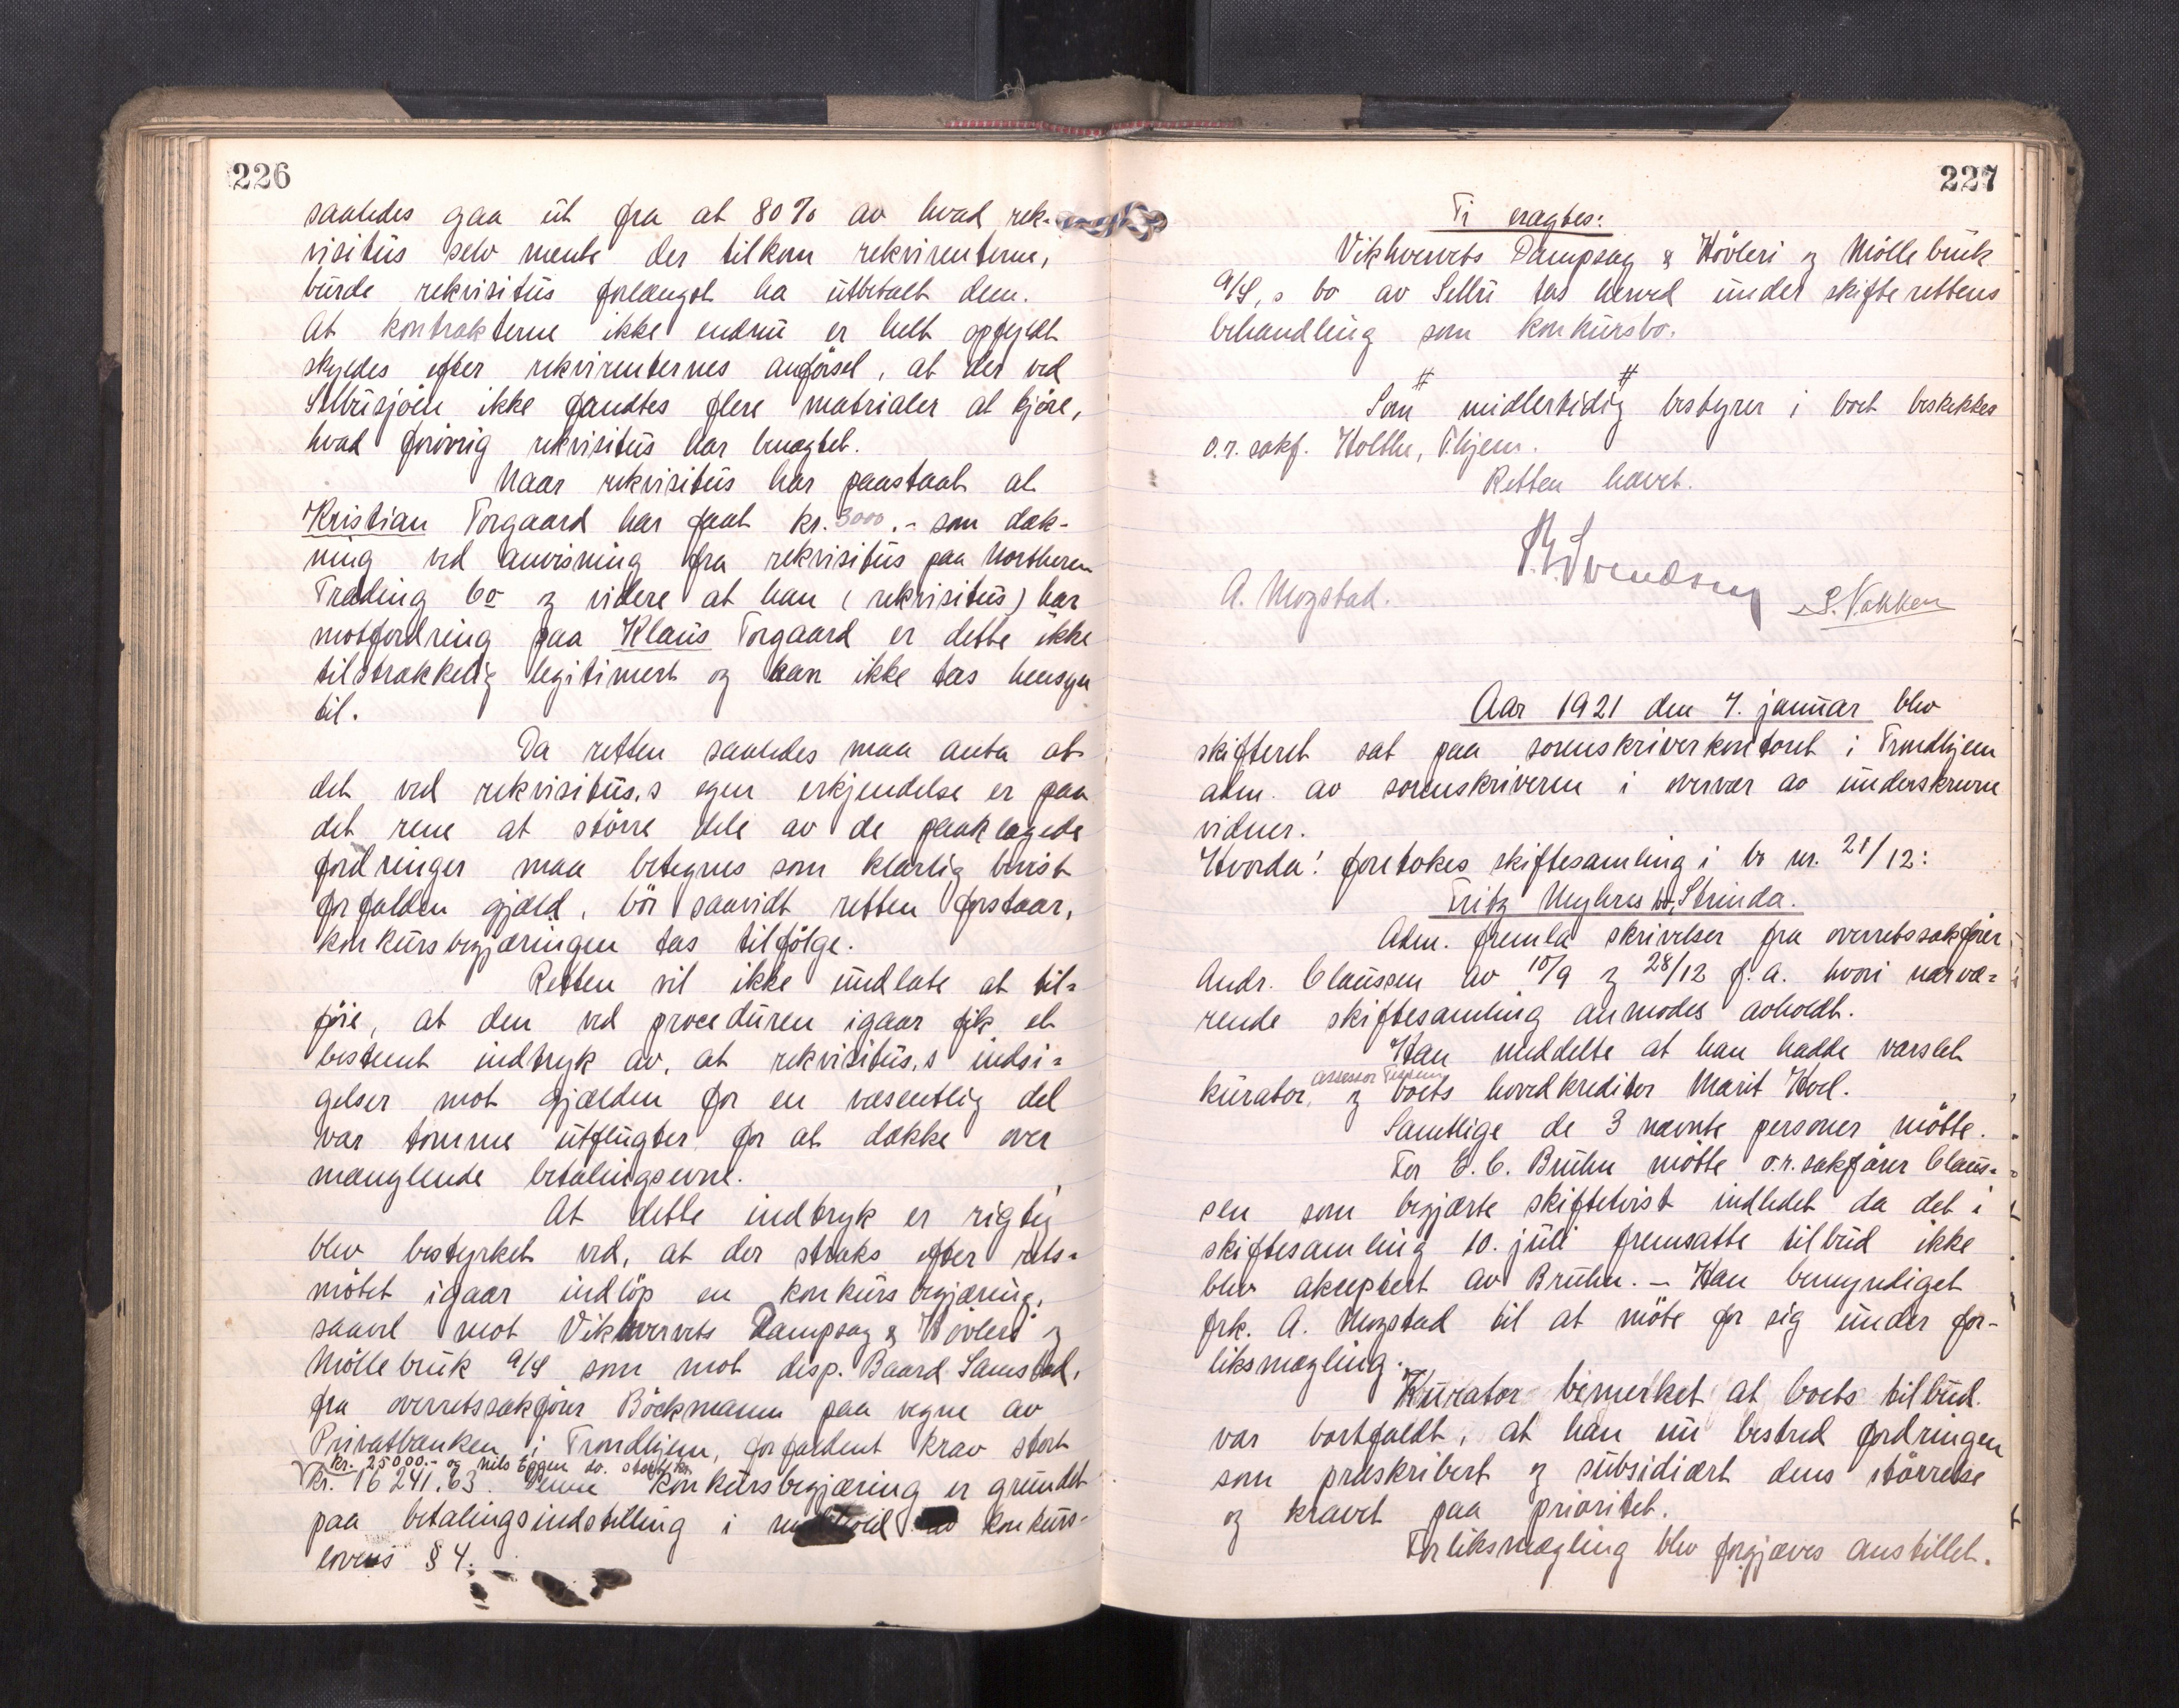 226
saaledes gaa ut fra at 80% av hvad rek-
visitus selv mente der tilkom rekvirenterne,
burde rekvisitus forlængst ha utbetalt dem.
At kontrakterne ikke endnu er helt opfyldt
skyldes efter rekvirenternes anförsel, at der ved
Selbusjöen ikke fandtes flere matrialer at kjöre,
hvad forövrig rekvisitus har benægtet.
Naar rekvisitus har paastaat at
Kristian Torgaard har faat kr. 3000.- som dæk-
ning ved anvisning fra rekvisitus paa Northern
Trading Co og videre at han (rekvisitus) har
motfordring paa Klaus Torgaard er dette ikke
tilstrækkelig legitimert og kan ikke tas hensyn
til.
Da retten saaledes maa anta at
det ved rekvisitus,s egen erkjendelse er paa
det rene at större dele av de paaklagede
fordringer maa betegnes som klarlig bevist
forfalden gjæld, bör saavidt retten forstaar,
konkursbegjæringen tas tilfölge.
Retten vil ikke undlate at til=
föie, at den ved proceduren igaar fik et
bestemt indtryk av, at rekvisitus,s indsi=
gelser mot gjælden for en væsentlig del
var tomme utflugter for at dække over
manglende betalingsevne.
At dette indtryk er rigtig
blev bestyrket ved, at der straks efter rets=
mötet igaar indlöp en konkursbegjæring,
saavel mot Vikhvervets Dampsag & Hövleri og
Möllebruk A/S som mot disp. Baard Samstad,
fra overretssakförer Böckmann paa vegne av
Privatbanken i Trondhjem, forfaldent krav stort
kr. 25000.- og Nils Eggen do. stort kr.
kr. 16241.63. Denne konkursbegjæring er grundet
paa betalingsindstilling i medhold av konkurs-
lovens § 4.
227
Ti eragtes:
Vikhvervets Dampsag & Hövleri og Möllebruk
A/S,s bo av Selbu tas herved under skifterettens
behandling som konkursbo.
Som midlertidig bestyrer i boet beskikkes
o.r. sakf. Holthe, T.hjem.
Retten hævet.
Svendsen
A. Mogstad. S. Nakken
Aar 1921 den 7. januar blev
skifteret sat paa sorenskriverkontoret i Trondhjem
adm. av sorenskriveren i overvær av underskrevne
vidner.
Hvorda! foretokes skiftesamling i bo nr. 21/12:
Fritz Meyers bo, Strinda.
Adm. fremla skrivelser fra overretssakförer
Andr. Claussen av 10/9 og 28/12 f. a. hvori nærvæ=
rende skiftesamling anmodes avholdt.
Han meddelte at han hadde varslet
assessor
kurator, og boets hovedkreditor Marit Hoel.
Samtlige de 3 nævnte personer mötte.
For E. C. Bruhn mötte o.r. sakförer Claus=
sen som begjærte skiftetvist indledet da det i
skiftesamling 10. juli fremsatte tilbud ikke
blev akceptert av Bruhn. - Han bemyndiget
frk. A. Mogstad til at möte for sig under for-
liksmægling.
Kurator bemerket at boets tilbud
var bortfaldt, at han nu bestred fordringen
som præskribert og subsidiært dens störrelse
og kravet paa prioritet.
Forliksmægling blev forgjæves anstillet.